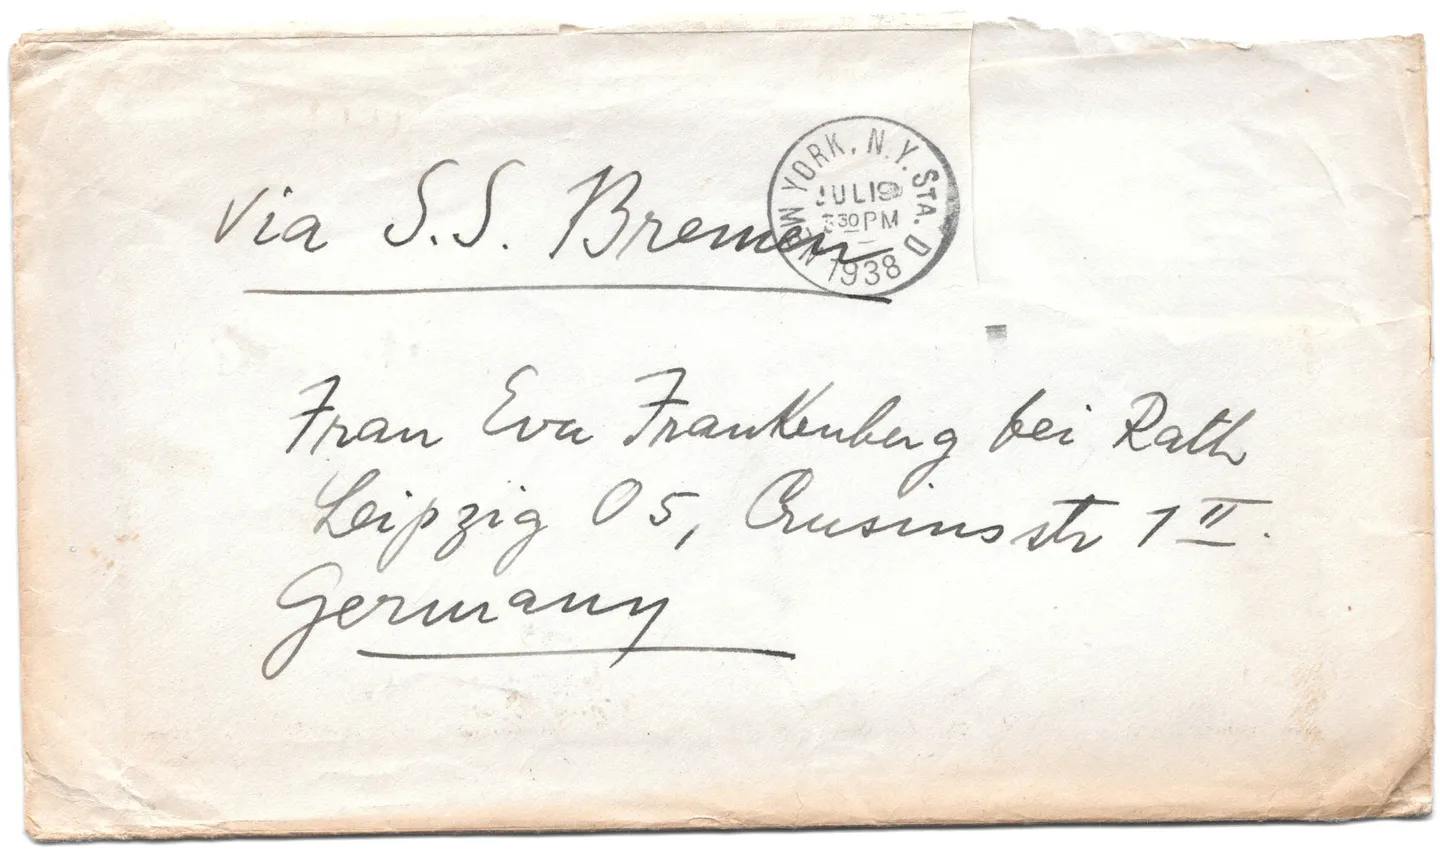 via S.S. Bremen
NEW YORK, N.Y. STA. D
JUL 19
330 PM
1938
Frau Eva Frankenberg bei Rath
Leipzig O5, Crusiusstr 1 II.
Germany